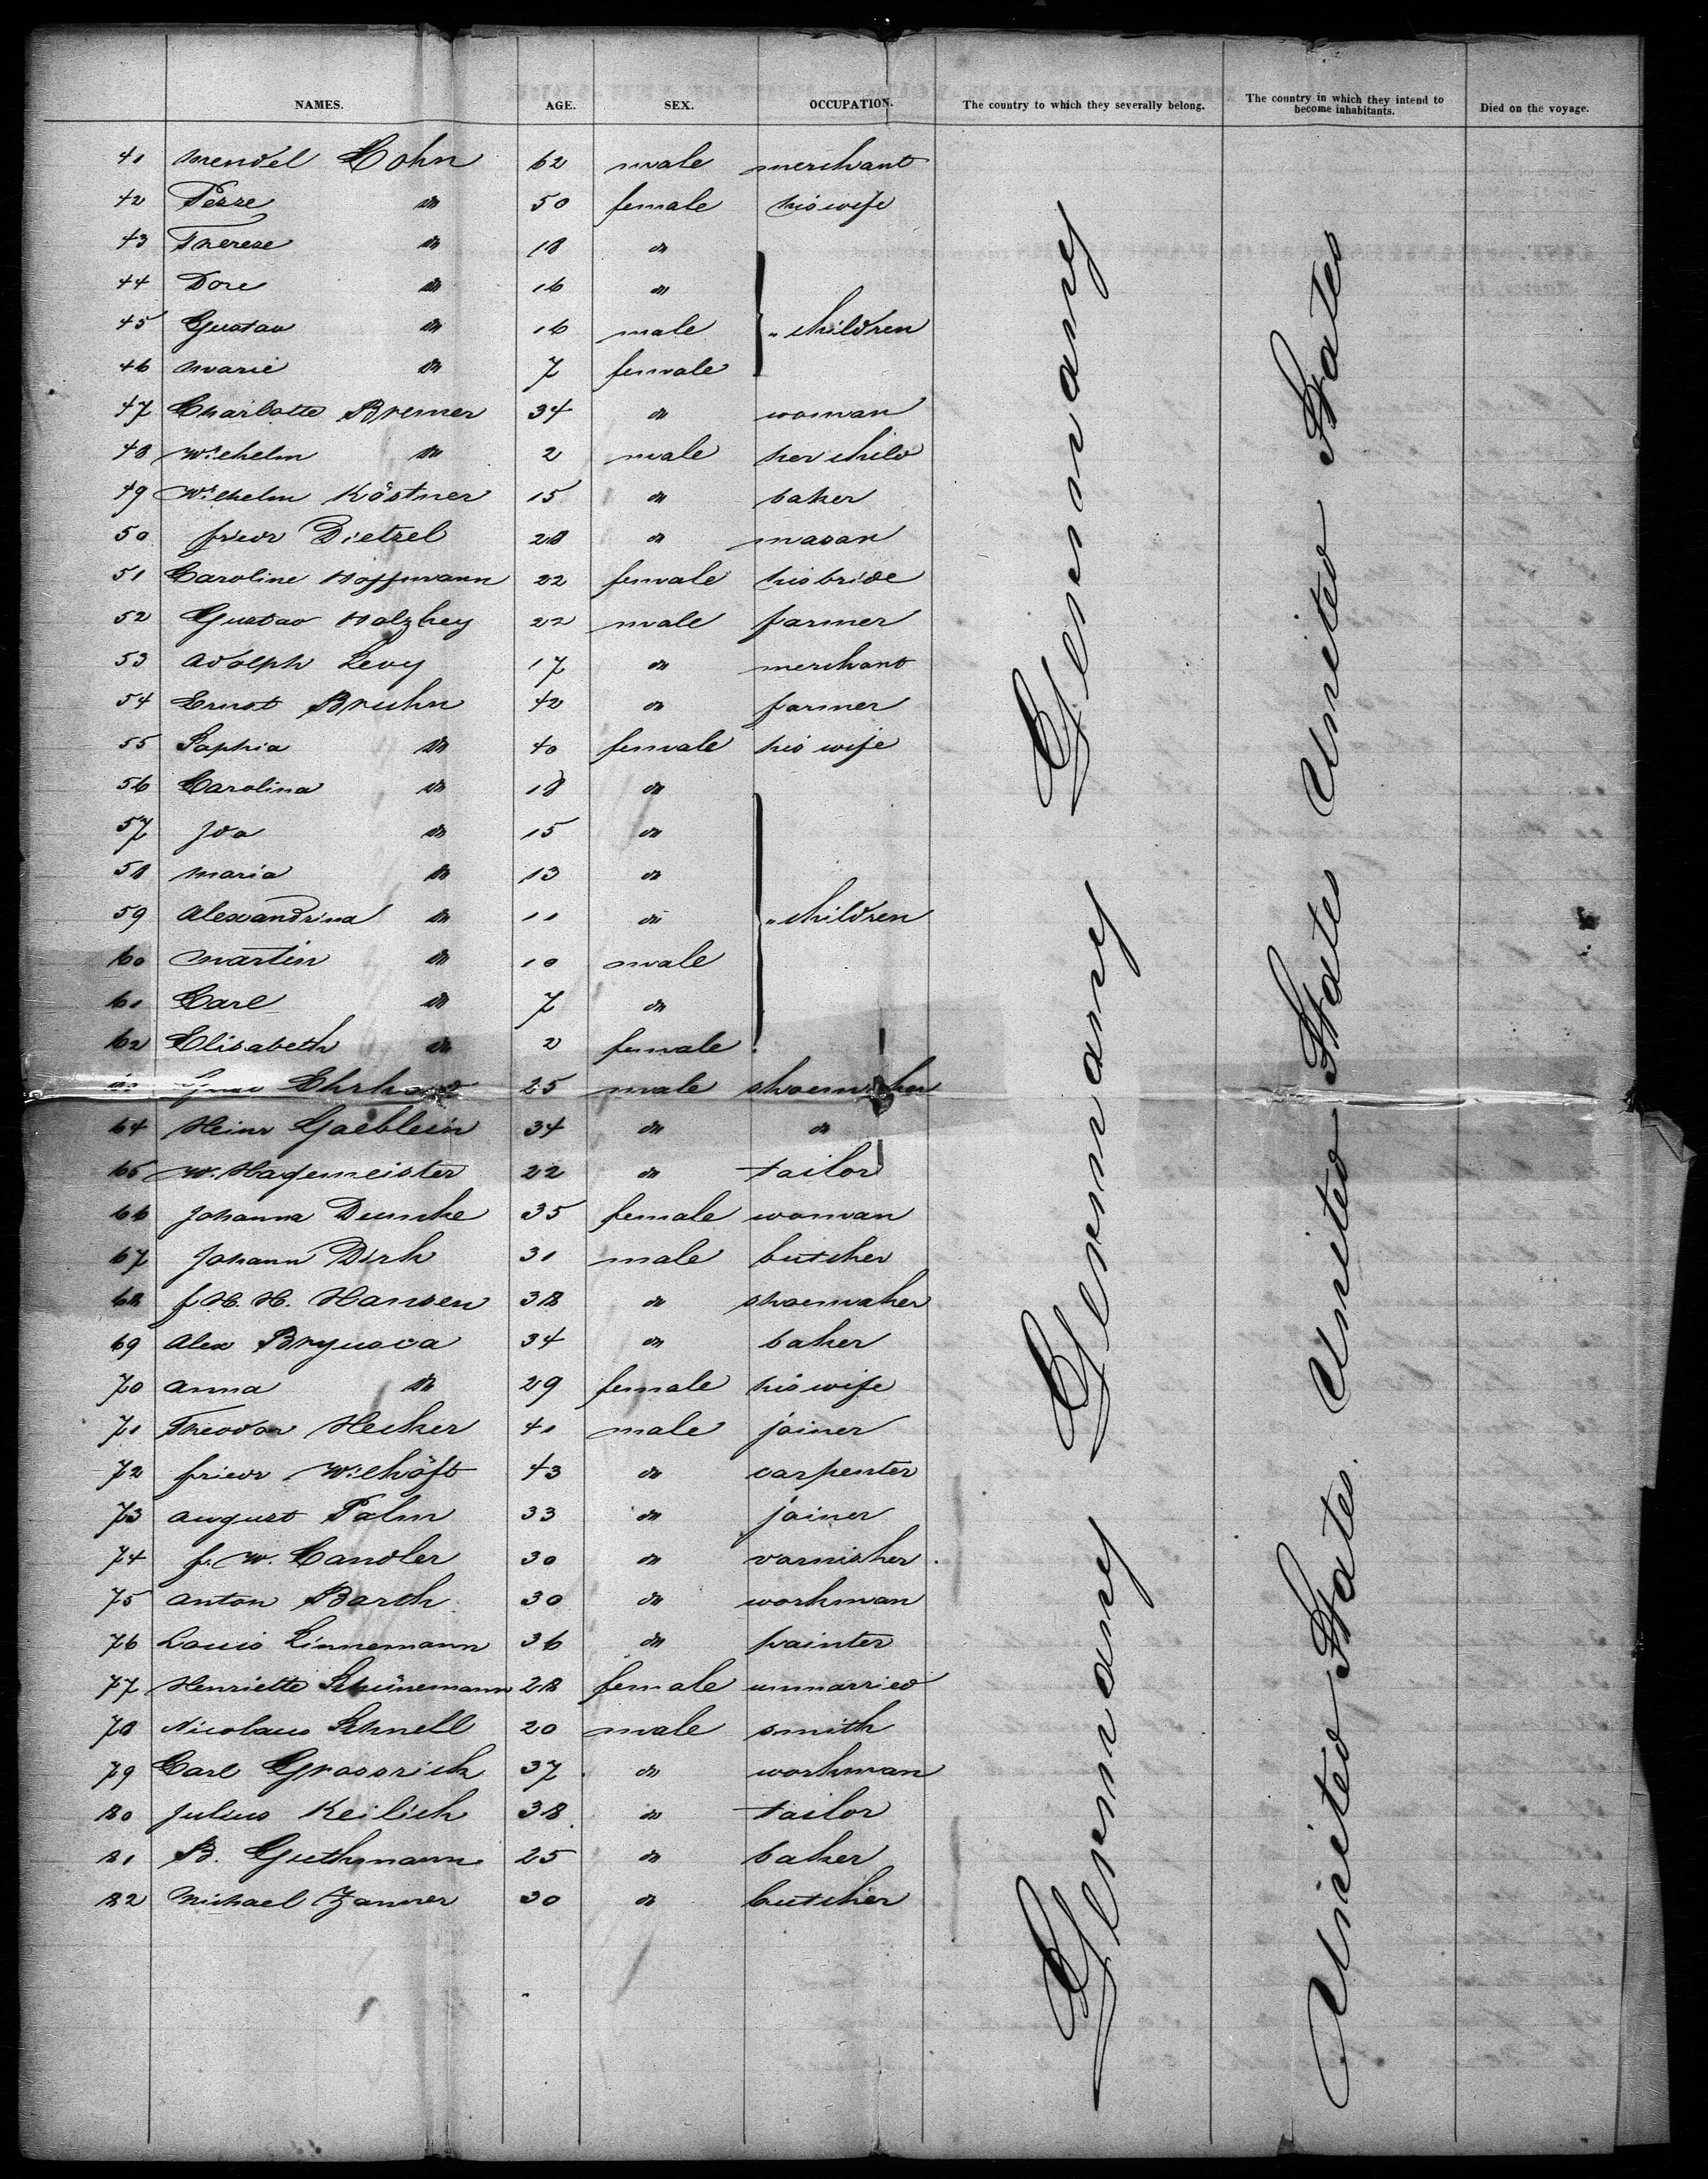 NAMES. AGE. SEX. OCCUPATION. The country to which they severally belong. The country in which they intend to become inhabitants. Died on the voyage.
41 Mendel Cohn 62 male merchant
42 Pesse dn 50 female his wife
43 Therese dn 18 dn
44 Dore dn 16 dn
45 Gustav dn 16 male " children
46 Marie dn 7 female
47 Charlotte Bremer 34 dn woman
48 Wilhelm dn 2 male her child
49 Wilhelm Köstner 15 dn baker
50 Friedr Dietzel 28 dn mason
51 Caroline Hoffmann 22 female his bride
52 Gustav Holzhey 22 male farmer
53 Adolph Levy 17 dn merchant
54 Ernst Bruhn 42 dn farmer
55 Sophia dn 40 female his wife
56 Carolina dn 18 dn
57 Ida dn 15 dn
58 Maria dn 13 dn
59 Alexandrina dn 11 dn " children
60 Martin dn 10 male
61 Carl dn 7 dn
62 Elisabeth dn 2 female
25 male shoemaker
64 Heinr Gaeblein 34 dn dn
65 W. Hagemeister 22 dn tailor
66 Johanna 35 female woman
67 Johann Dirk 31 male butcher
68 J. H. H. Hansen 38 dn shoemaker
69 Alex 34 dn baker
70 Anna dn 29 female his wife
71 Theodor Hecker 41 male joiner
72 Friedr Wilhöft 43 dn carpenter
73 August Palm 33 dn joiner
74 F. W. Candler 30 dn varnisher
75 Anton Barth 30 dn workman
76 Louis Linnemann 36 dn painter
77 Henriette Schünemann 28 female unmarried
78 Nicolaus Schnell 20 male smith
79 Carl Grossrick 37 dn workman
80 Julius Keilich 38 dn tailor
81 B. Guthmann 25 dn baker
82 Michael Zanner 30 dn butcher
Germany Germany Germany
United States United States United States